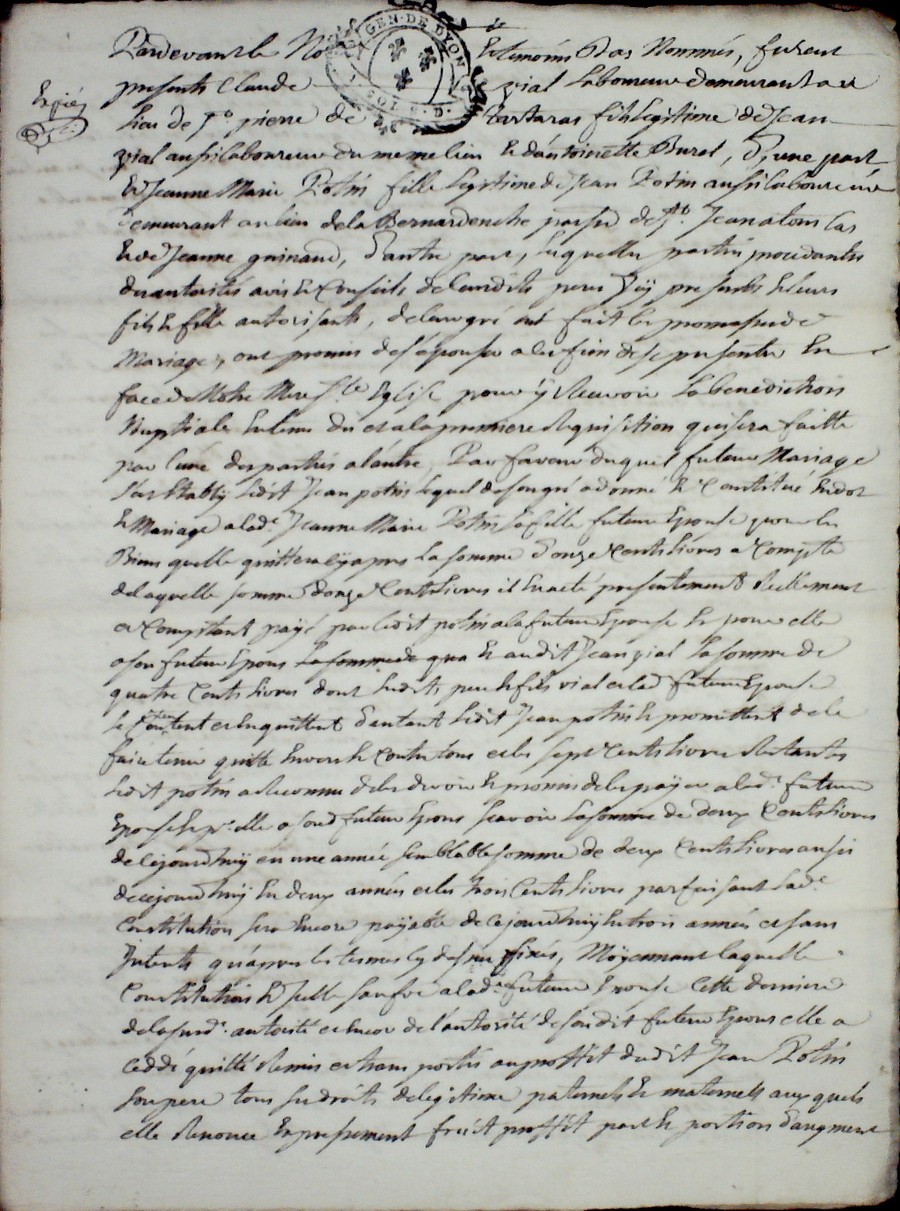 Pardevant le No et temoins Bas Nommés, furent
GEN·DE LYON
presents Claude vial laboureur demeurant au
Expié
lieu de St pierre de Chartaras fils legitime de Jean
vial aussi laboureur du meme lieu et d'antoinette Burel, d'une part
Et Jeanne Marie Potin fille legitime de Jean Potin aussi laboureur
demeurant au lieu de la Bernardenche parsse de St Jean
Et de Jeanne guinand, d'autre part, lesquelles parties procedantes
des autorités avis et Conseils de leursdits peres icy presents et leurs
fils et fille autorisants, de leur gré ont fait les promesses de
Mariage, ont promis de s'epouser a ces fins de se presenter En
face de Notre Mere Ste Eglise pour ÿ Recevoir la benediction
Nuptiale Entems du et a la premiere Requisition qui sera faitte
par l'une des parties a l'autre, En faveur duquel futeur Mariage
s'est Etably ledit Jean potin lequel de son gré a donné et Constitué En dot
et Mariage a lade Jeanne Marie Potin sa fille future Epouse pour les
Biens quelle quittera cÿ apres la somme d'onze Cents livres a Compte
de laquelle somme d'onze Cents livres il En a eté presentement Reellement
et Comptant paÿé par ledit potin a la future Epouse et pour elle
a son futeur Epoux la somme de qua et audit Jean vial la somme de
quatre Cents livres dont lesdits pere et fils vial et lade future Epouse
se Contentent et En quittent d'autant ledit Jean potin et promettent de le
faire tenir quitte Envers et Contre tous et les sept Cents livres Restantes
ledit potin a Reconnu de les devoir et promis de les paÿer a lade future
Epouse et pr elle a sond futeur Epoux scavoir la somme de deux Cents livres
de cejourd'huÿ en une année semblable somme de deux Cents livres aussi
de cejourd'huÿ En deux années et les trois Cents livres parfaisant lade
Constitution sera Encore paÿable de cejourd'huÿ En trois années et sans
Interets qu'apres les termes cÿ dessus fixés, Moÿennant laquelle
Constitution Et Icelle sauf a lade future Epouse Cette derniere
de la surde autorité et Encor de l'autorité de son dit futeur Epoux elle a
Ceddé quitté Remis et transportés au proffit dudit Jean Potin
son pere tous ses droits de legitime paternels et maternels auxquels
elle Renonce Expressement fruit proffit part et portion d'augment